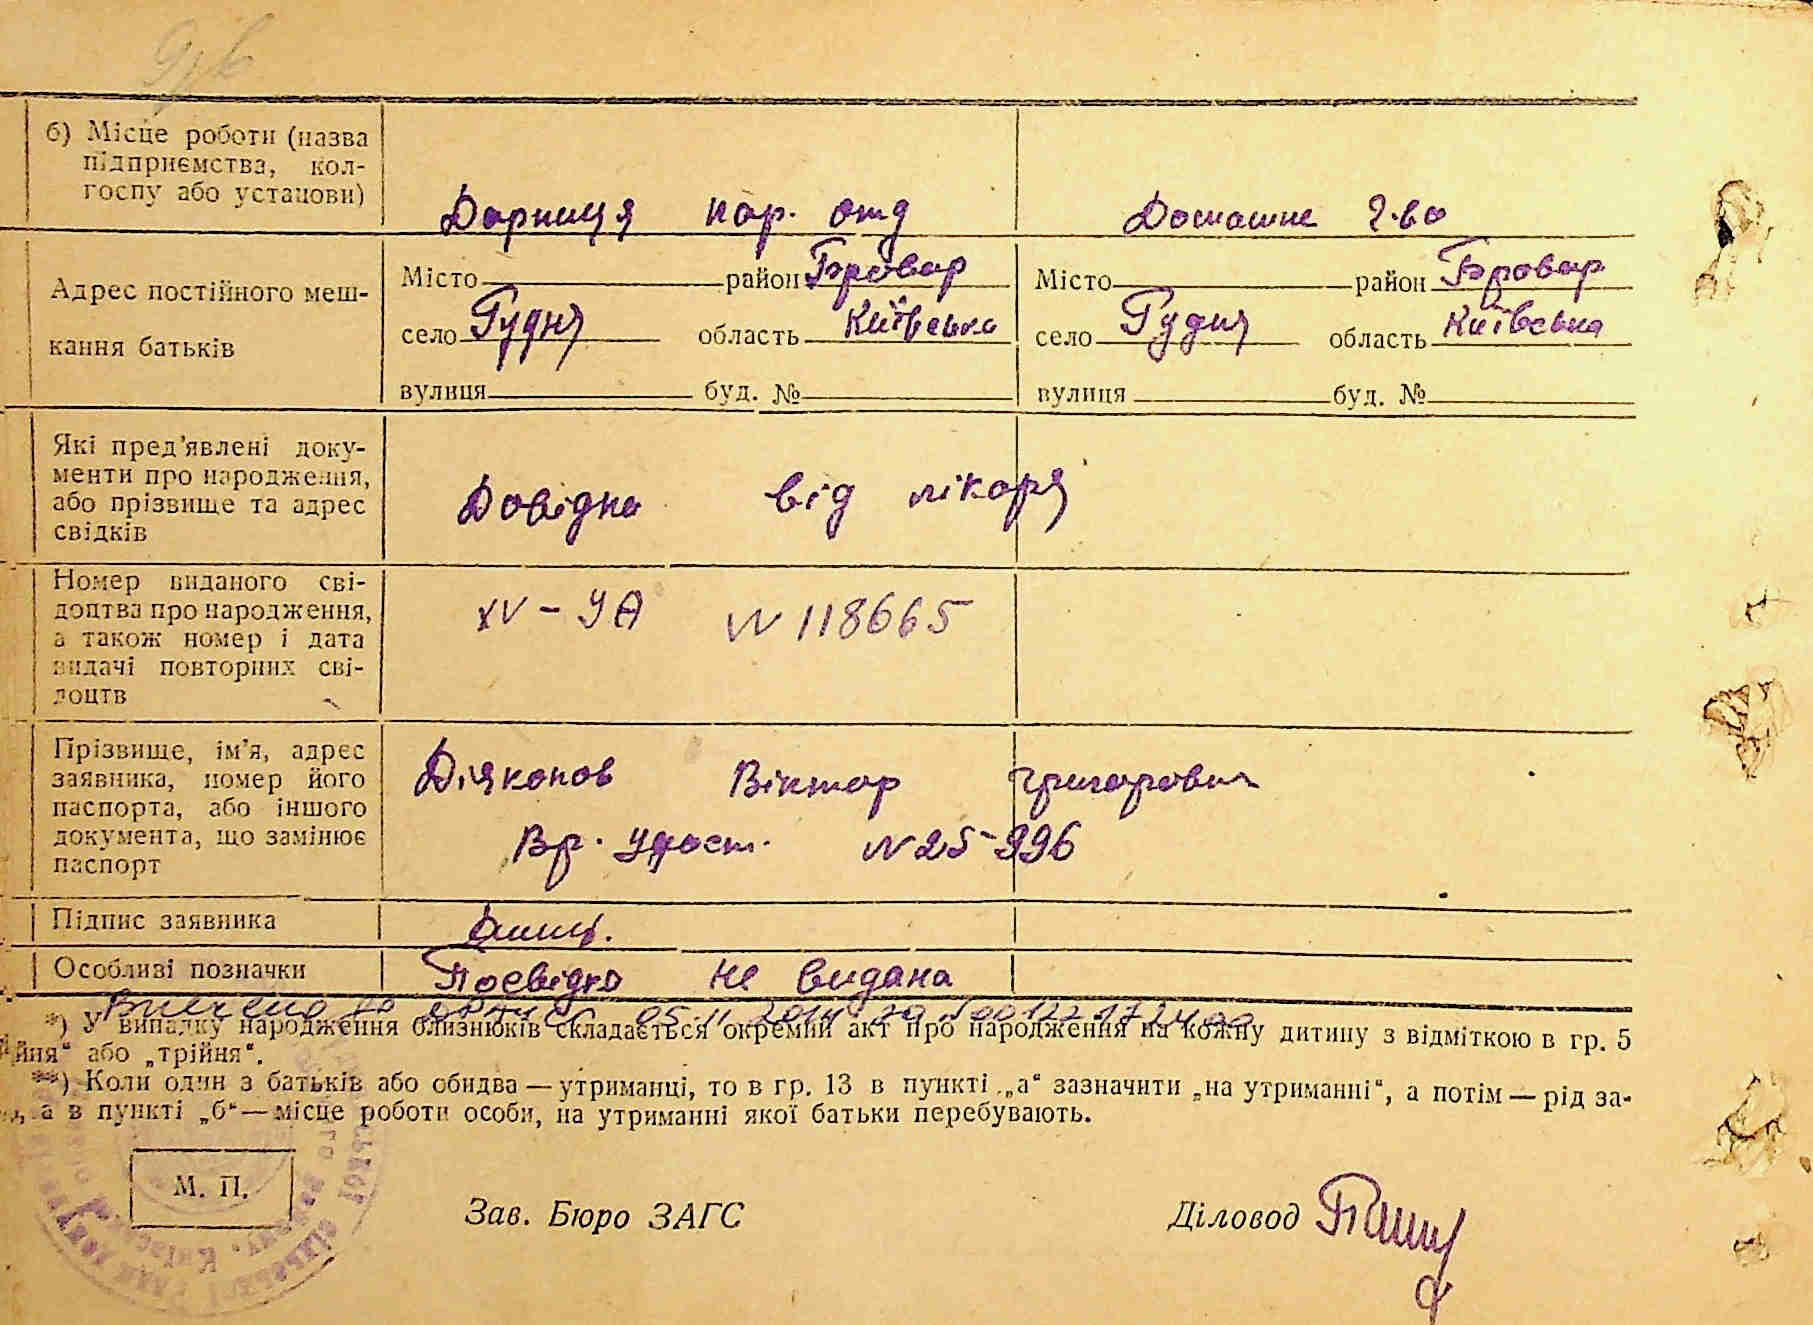 б) Місце роботи (назва
підприємства, кол-
госпу або установи)
Дарниця пар. отд
Домашнє г-во
Адрес постійного меш-
кання батьків
Місто район Бровар
село Рудня область Київська
вулиця буд. №
Місто район Бровар
село Рудня область Київська
вулиця буд. №
Які пред'явлені доку-
менти про народження,
або прізвище та адрес
свідків
Довідка від лікаря
Номер виданого сві-
доцтва про народження,
а також номер і дата
видачі повторних сві-
доцтв
XV-УА N 118665
Прізвище, ім'я, адрес
заявника, номер його
паспорта, або іншого
документа, що замінює
паспорт
Діяконов Віктор Григорович
Вр. Удост. N 25-996
Підпис заявника
Особливі позначки
Посвідка не видана
05.11.2014
*) У випадку народження близнюків складається окремий акт про народження на кожну дитину з відміткою в гр. 5
або „трійня“.
**) Коли один з батьків або обидва — утриманці, то в гр. 13 в пункті „а“ зазначити „на утриманні“, а потім — рід за-
а в пункті „б“ — місце роботи особи, на утриманні якої батьки перебувають.
М. П.
Зав. Бюро ЗАГС
Діловод